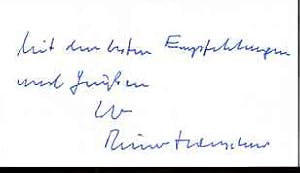 Mit den besten Empfehlungen
und Grüßen
Ihr